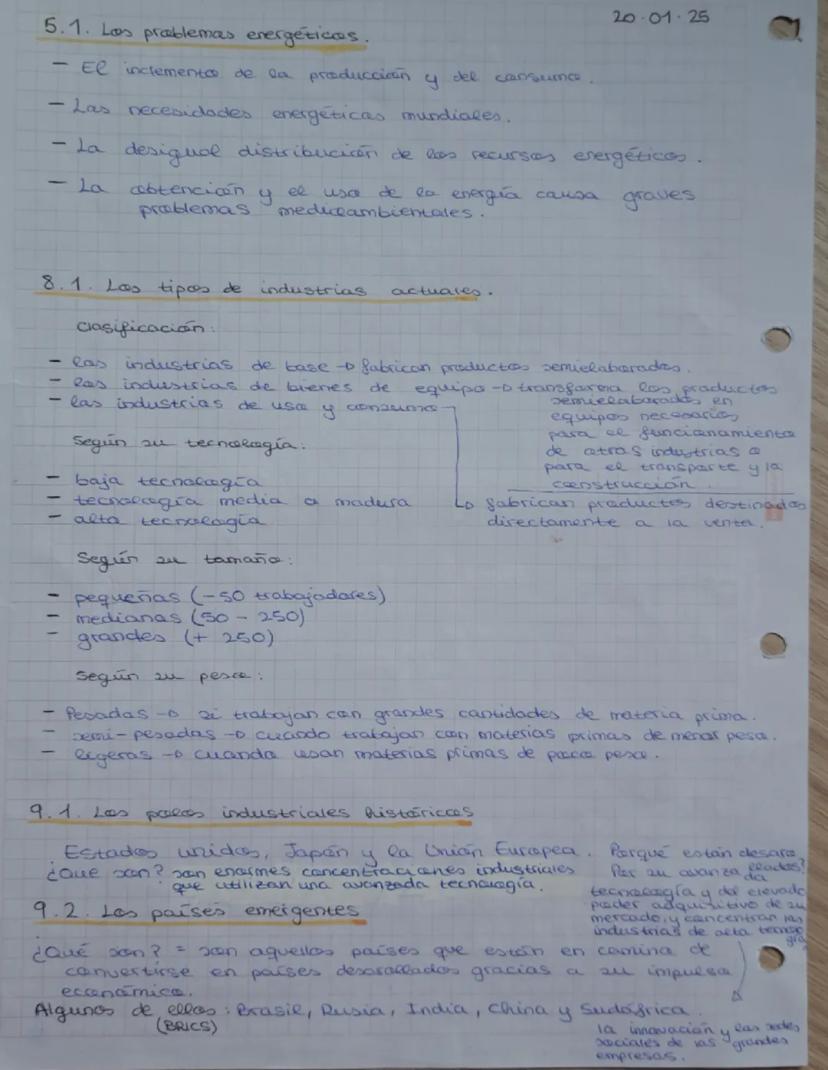 20·01·25
5.1. Los problemas energéticos.
- El incremento de la producción y del consumo.
- Las necesidades energéticas mundiales.
- La desigual distribución de los recursos energéticos.
- La obtención y el uso de la energía causa graves
problemas medioambientales.
8.1. Los tipos de industrias actuales.
Clasificación:
- las industrias de base → fabrican productos semielaborados.
- las industrias de bienes de equipo → transforma los productos
semielaborados en
equipos necesarios
para el funcionamiento
de otras industrias o
para el transporte y la
construcción.
- las industrias de uso y consumo
→ fabrican productos destinados
directamente a la venta.
Según su tecnología:
- baja tecnología
- tecnología media o madura
- alta tecnología
Según su tamaño:
- pequeñas (-50 trabajadores)
- medianas (50 - 250)
- grandes (+ 250)
Según su peso:
- Pesadas → si trabajan con grandes cantidades de materia prima.
- semi-pesadas → cuando trabajan con materias primas de menor peso.
- ligeras → cuando usan materias primas de poco peso.
9.1. Los polos industriales históricos
Estados unidos, Japón y la Unión Europea.
¿Que son? son enormes concentraciones industriales
que utilizan una avanzada tecnología.
Porqué están desarrollados?
Por su avanzada
tecnología y del elevado
poder adquisitivo de su
mercado, y concentran las
industrias de alta tecnología
→ la innovación y las sedes
sociales de las grandes
empresas.
9.2. Los países emergentes
¿Qué son? = son aquellos países que están en camino de
convertirse en países desarollados gracias a su impulso
económico.
Algunos de ellos: Brasil, Rusia, India, China y Sudáfrica.
(BRICS)